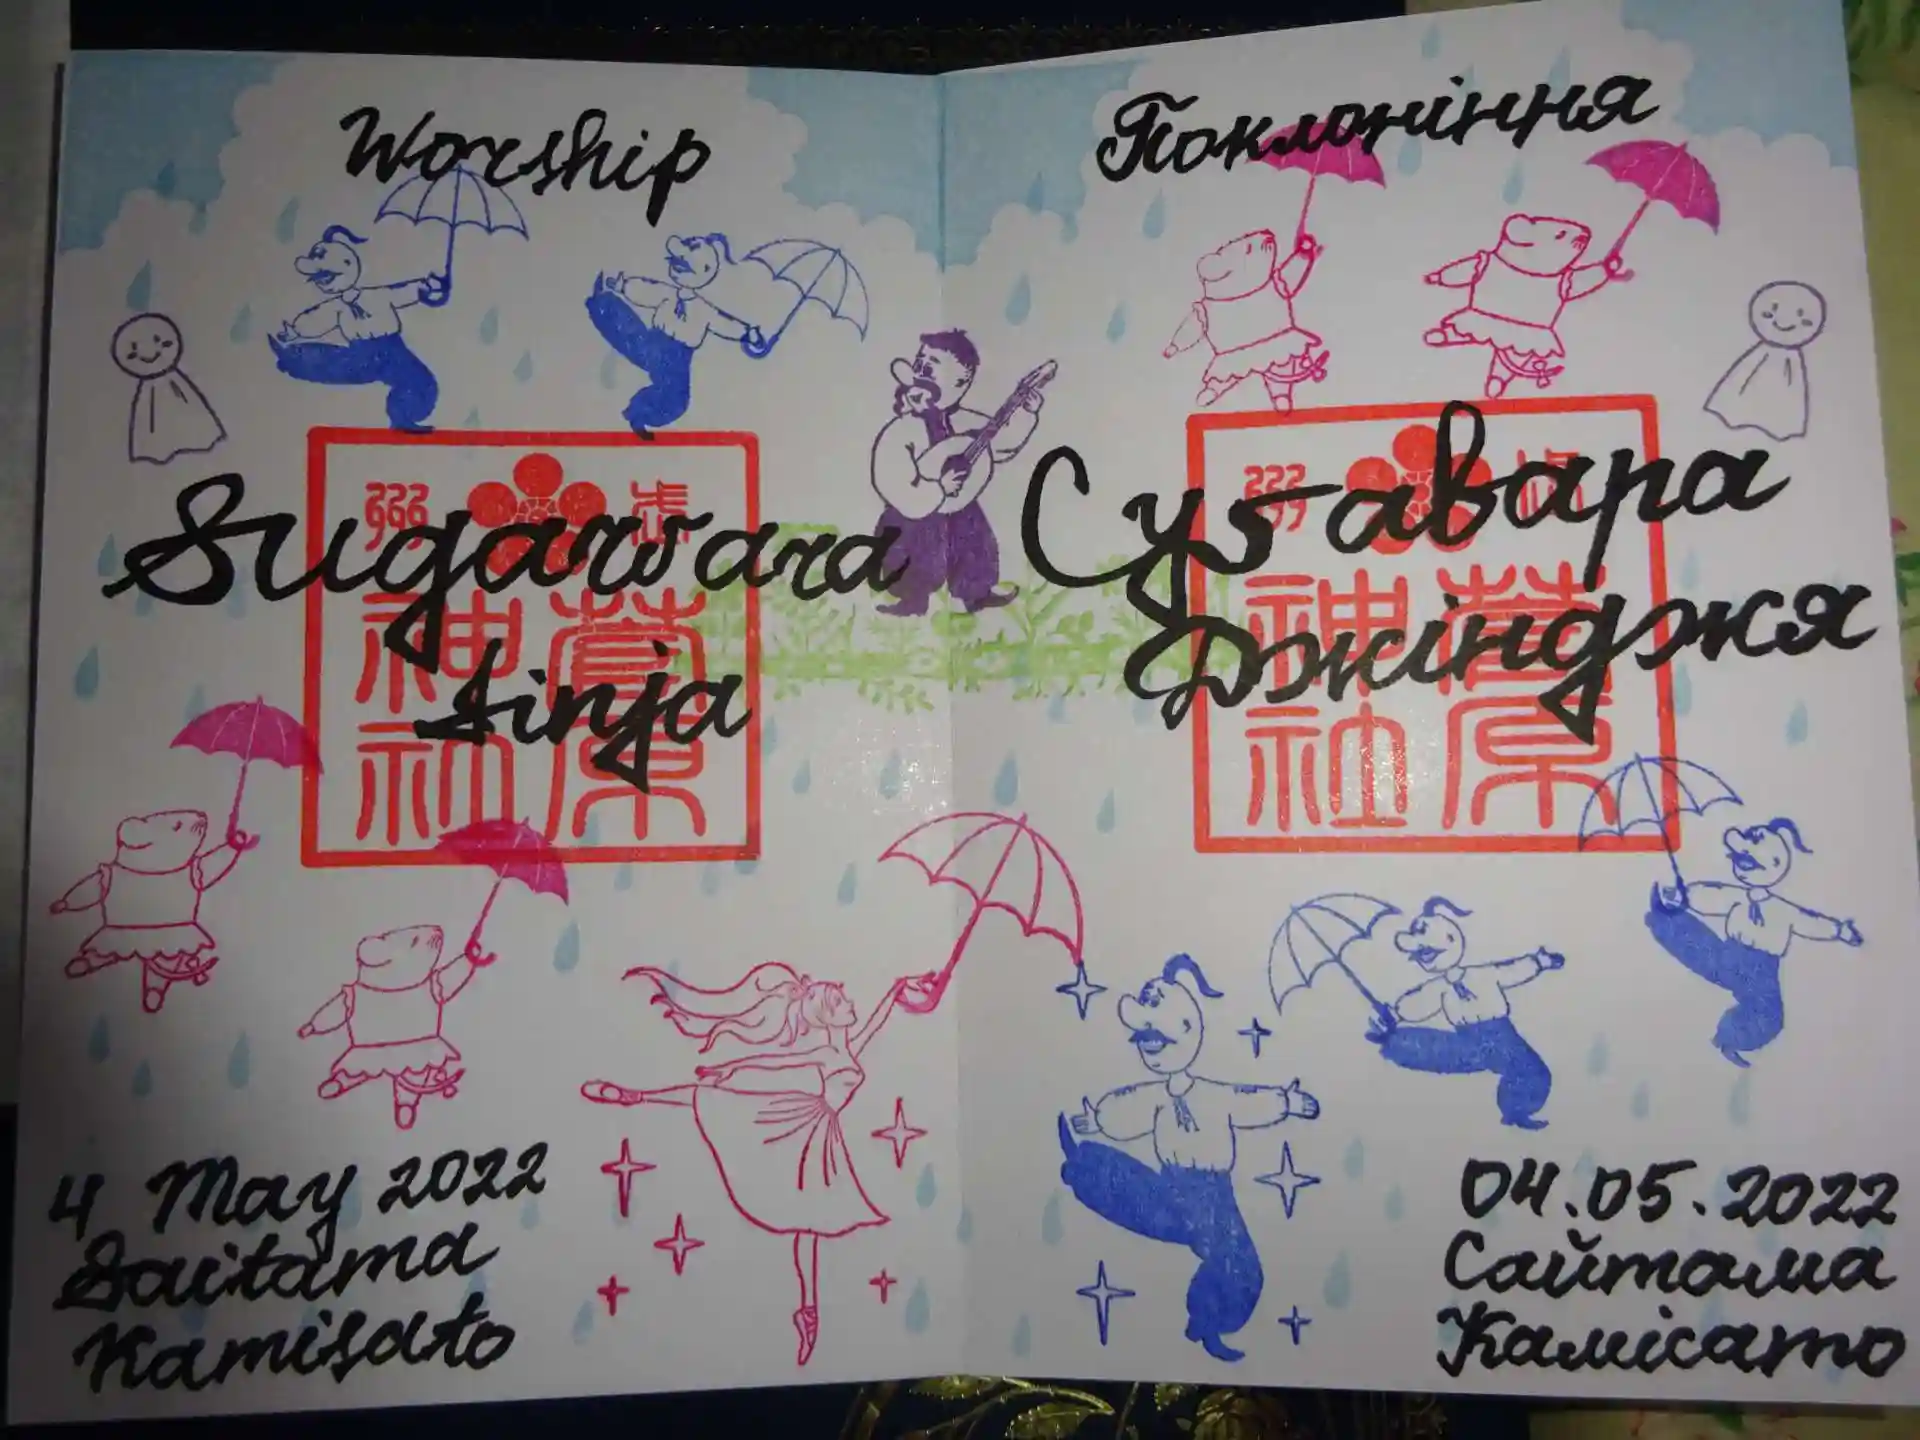 Worship
Sugawara
Jinja
4 May 2022
Saitama
Kamisato
Поклоніння
Суґавара
Джінджя
04.05.2022
Сайтама
Камісато
菅原
神社